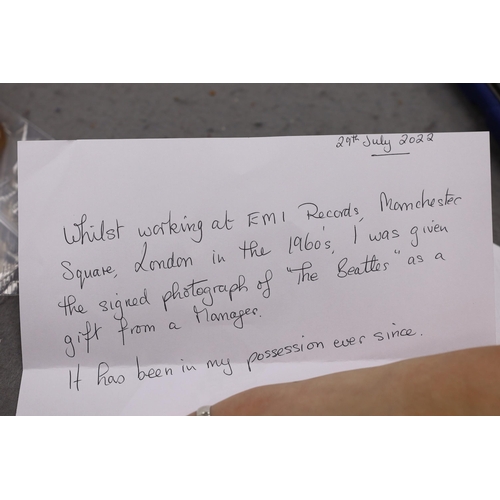 29th July 2022
Whilst working at EMI Records, Manchester
Square, London in the 1960's, I was given
the signed photograph of "The Beatles" as a
gift from a Manager.
It has been in my possession ever since.